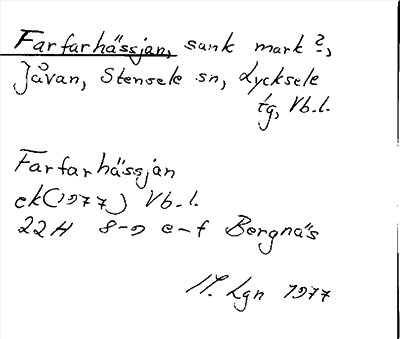 Farfarhässjan, sank mark ?,
Jåvan, Stensele sn, Lycksele
tg, Vb.l.
Farfarhässjan
ek(1977) Vb.l.
22H 8-9 e-f Bergnäs
H. Lgn 1977